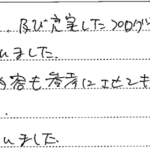 、及び充実したプログ
いました。
内容も参考にさせてもら
いました。